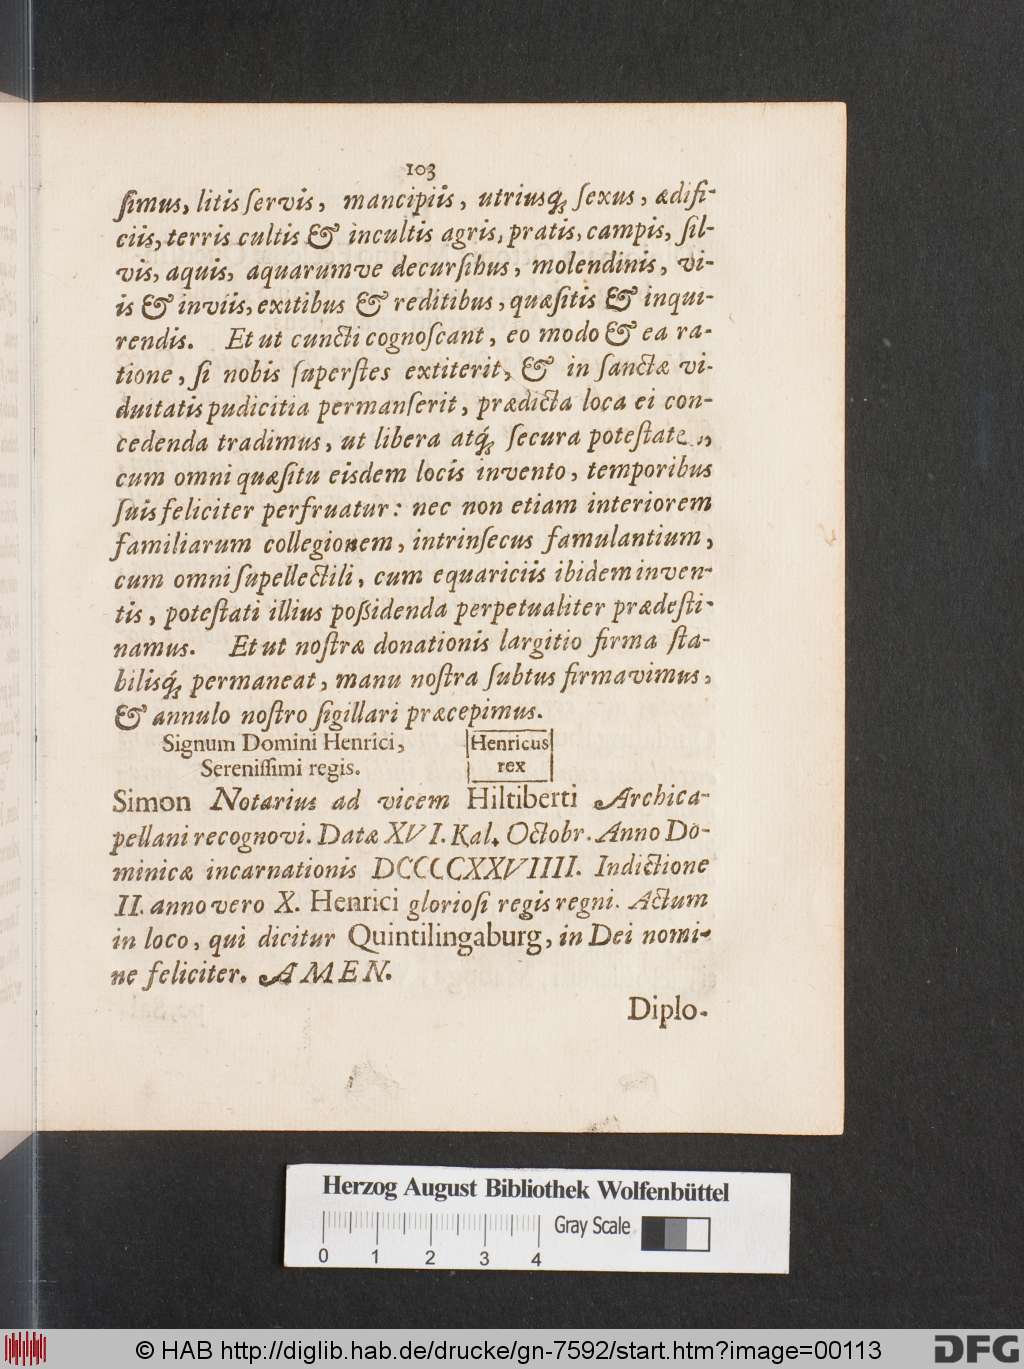 103
ſimus, litis ſervis, mancipiis, utriusq́; ſexus, ædifi-
ciis, terris cultis & incultis agris, pratis, campis, ſil-
vis, aquis, aquarumve decurſibus, molendinis, vi-
is & inviis, exitibus & reditibus, quæſitis & inqui-
rendis. Et ut cuncti cognoſcant, eo modo & ea ra-
tione, ſi nobis ſuperſtes extiterit, & in ſanctæ vi-
duitatis pudicitia permanſerit, prædicta loca ei con-
cedenda tradimus, ut libera atq́; ſecura poteſtate,
cum omni quæſitu eisdem locis invento, temporibus
ſuis feliciter perfruatur: nec non etiam interiorem
familiarum collegionem, intrinſecus famulantium,
cum omni ſupellectili, cum equariciis ibidem inven-
tis, poteſtati illius poſſidenda perpetualiter prædeſti-
namus. Et ut noſtræ donationis largitio firma ſta-
bilisq́; permaneat, manu noſtra ſubtus firmavimus,
& annulo noſtro ſigillari præcepimus.
Signum Domini Henrici, Henricus
Sereniſſimi regis. rex
Simon Notarius ad vicem Hiltiberti Archica-
pellani recognovi. Datæ XVI. Kal. Octobr. Anno Do-
minicæ incarnationis DCCCCXXVIIII. Indictione
II. anno vero X. Henrici glorioſi regis regni. Actum
in loco, qui dicitur Quintilingaburg, in Dei nomi-
ne feliciter. AMEN.
Diplo-
Herzog August Bibliothek Wolfenbüttel
Gray Scale
0 1 2 3 4
© HAB http://diglib.hab.de/drucke/gn-7592/start.htm?image=00113
DFG